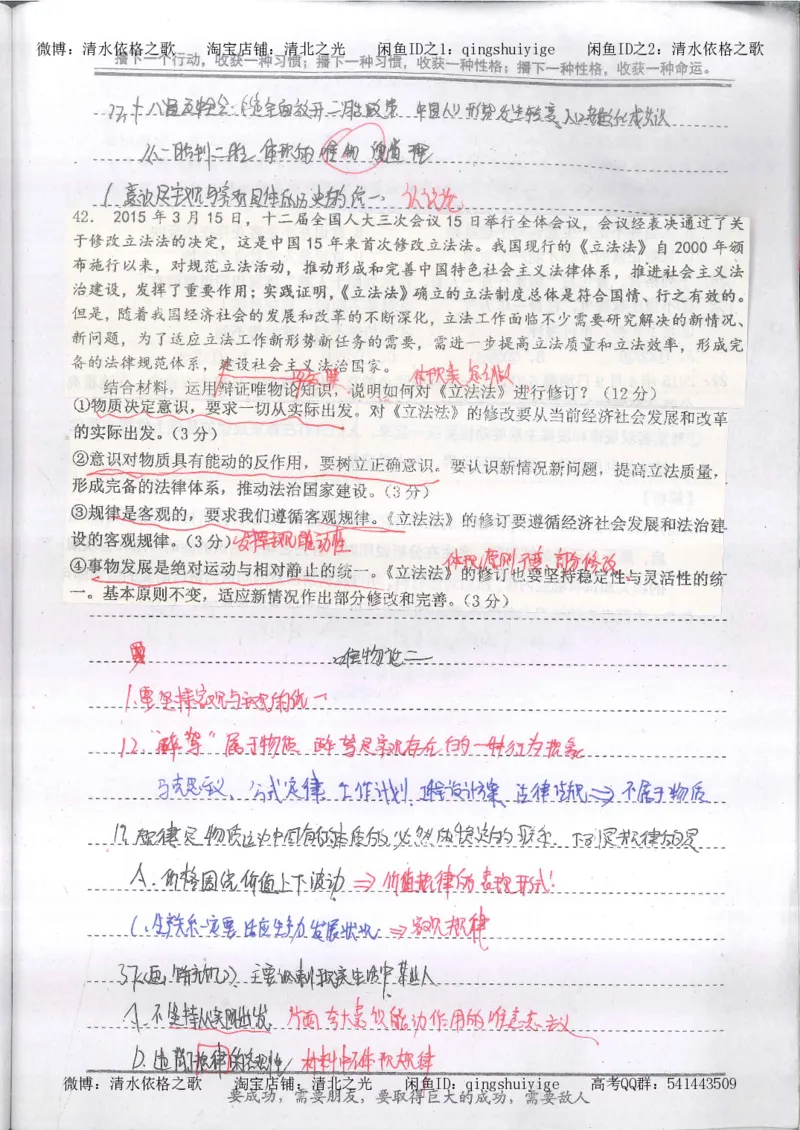 微博：清水依格之歌 淘宝店铺：清北之光 闲鱼ID之1：qingshuiyige 闲鱼ID之2：清水依格之歌
播下一个行动，收获一种习惯；播下一种习惯，收获一种性格；播下一种性格，收获一种命运。
27. 十八届五中全会：决定全面放开二胎政策
从一胎制到二胎 体现的唯物
认识论
42. 2015年3月15日，十二届全国人大三次会议15日举行全体会议，会议经表决通过了关
于修改立法法的决定，这是中国15年来首次修改立法法。我国现行的《立法法》自2000年颁
布施行以来，对规范立法活动，推动形成和完善中国特色社会主义法律体系，推进社会主义法
治建设，发挥了重要作用；实践证明，《立法法》确立的立法制度总体是符合国情、行之有效的。
但是，随着我国经济社会的发展和改革的不断深化，立法工作面临不少需要研究解决的新情况、
新问题，为了适应立法工作新形势新任务的需要，需进一步提高立法质量和立法效率，形成完
备的法律规范体系，建设社会主义法治国家。
结合材料，运用辩证唯物论知识，说明如何对《立法法》进行修订？（12分）
①物质决定意识，要求一切从实际出发。对《立法法》的修改要从当前经济社会发展和改革
的实际出发。（3分）
②意识对物质具有能动的反作用，要树立正确意识。要认识新情况新问题，提高立法质量，
形成完备的法律体系，推动法治国家建设。（3分）
③规律是客观的，要求我们遵循客观规律。《立法法》的修订要遵循经济社会发展和法治建
设的客观规律。（3分）发挥主观能动性
体现原则不变，部分修改
④事物发展是绝对运动与相对静止的统一。《立法法》的修订也要坚持稳定性与灵活性的统
一。基本原则不变，适应新情况作出部分修改和完善。（3分）
唯物论二
1. 要坚持客观与主观的统一
12. "醉驾"属于物质 醉驾是客观存在的一种行为现象
马克思主义、公式定律、工作计划、工程设计方案、法律法规⇒不属于物质
17. 规律是物质运动中固有的本质的必然的稳定的联系，下列属规律的是
A. 价格围绕价值上下波动⇒价值规律的表现形式！
C. 生产关系一定要适应生产力发展状况⇒客观规律
主要讽刺现实生活中某些人
A. 不坚持从实际出发，片面夸大意识能动作用的唯意志主义
D. 违背规律的客观性 材料中不体现规律
微博：清水依格之歌 淘宝店铺：清北之光 闲鱼ID：qingshuiyige 高考QQ群：541443509
要成功，需要朋友，要取得巨大的成功，需要敌人